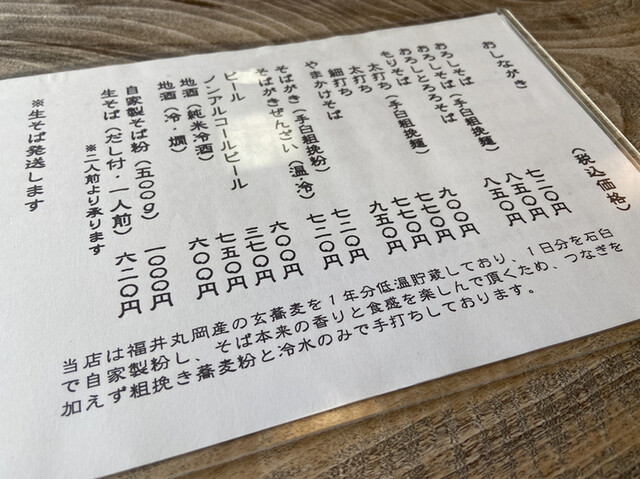 おしながき (税込価格)
おろしそば 七二〇円
おろしそば(手臼粗挽麺) 八五〇円
おろしとろろそば 八五〇円
もりそば
太打ち(手臼粗挽麺) 九〇〇円
太打ち 七七〇円
細打ち 七七〇円
やまかけそば 九五〇円
そばがき(手臼粗挽粉) 七二〇円
そばがきぜんざい(温・冷) 七二〇円
ビール 六〇〇円
ノンアルコールビール 三七〇円
地酒(純米冷酒) 七五〇円
地酒(冷・燗) 六〇〇円
自家製そば粉(五〇〇g) 一〇〇〇円
生そば(だし付・一人前) 六二〇円
※二人前より承ります
※生そば発送します
当店は福井丸岡産の玄蕎麦を1年分低温貯蔵しており、1日分を石臼
で自家製粉し、そば本来の香りと食感を楽しんで頂くため、つなぎを
加えず粗挽き蕎麦粉と冷水のみで手打ちしております。